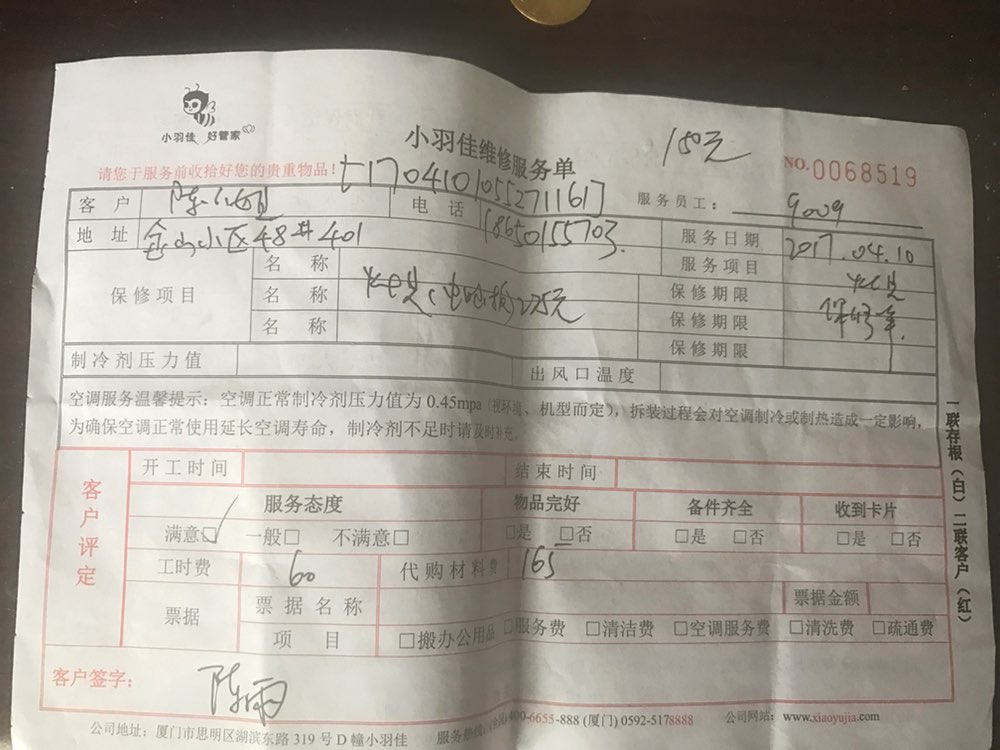 小羽佳 好管家
小羽佳维修服务单
150元
请您于服务前收拾好您的贵重物品！
t17041010552711617
NO.0068519
客 户 陈小姐 电 话 18650155703.
服务员工： 9009
地 址 金山小区48#401
服务日期 2017.04.10
服务项目
名 称
保修项目 名 称 225元
名 称
保修期限
保修期限
保修期限
制冷剂压力值 出风口温度
空调服务温馨提示：空调正常制冷剂压力值为 0.45mpa（视环境、机型而定），拆装过程会对空调制冷或制热造成一定影响，
为确保空调正常使用延长空调寿命，制冷剂不足时请及时补充。
客户评定
开工时间 结束时间
服务态度 物品完好 备件齐全 收到卡片
满意☑ 一般□ 不满意□ □是 □否 □是 □否 □是 □否
工时费 60 代购材料费 165
票据 票据名称 票据金额
项 目 □搬办公用品 □服务费 □清洁费 □空调服务费 □清洗费 □疏通费
客户签字： 陈雨
公司地址：厦门市思明区湖滨东路 319 号 D 幢小羽佳 服务热线：(全国)400-6655-888 (厦门) 0592-5178888 公司网站：www.xiaoyujia.com
一联存根（白）二联客户（红）